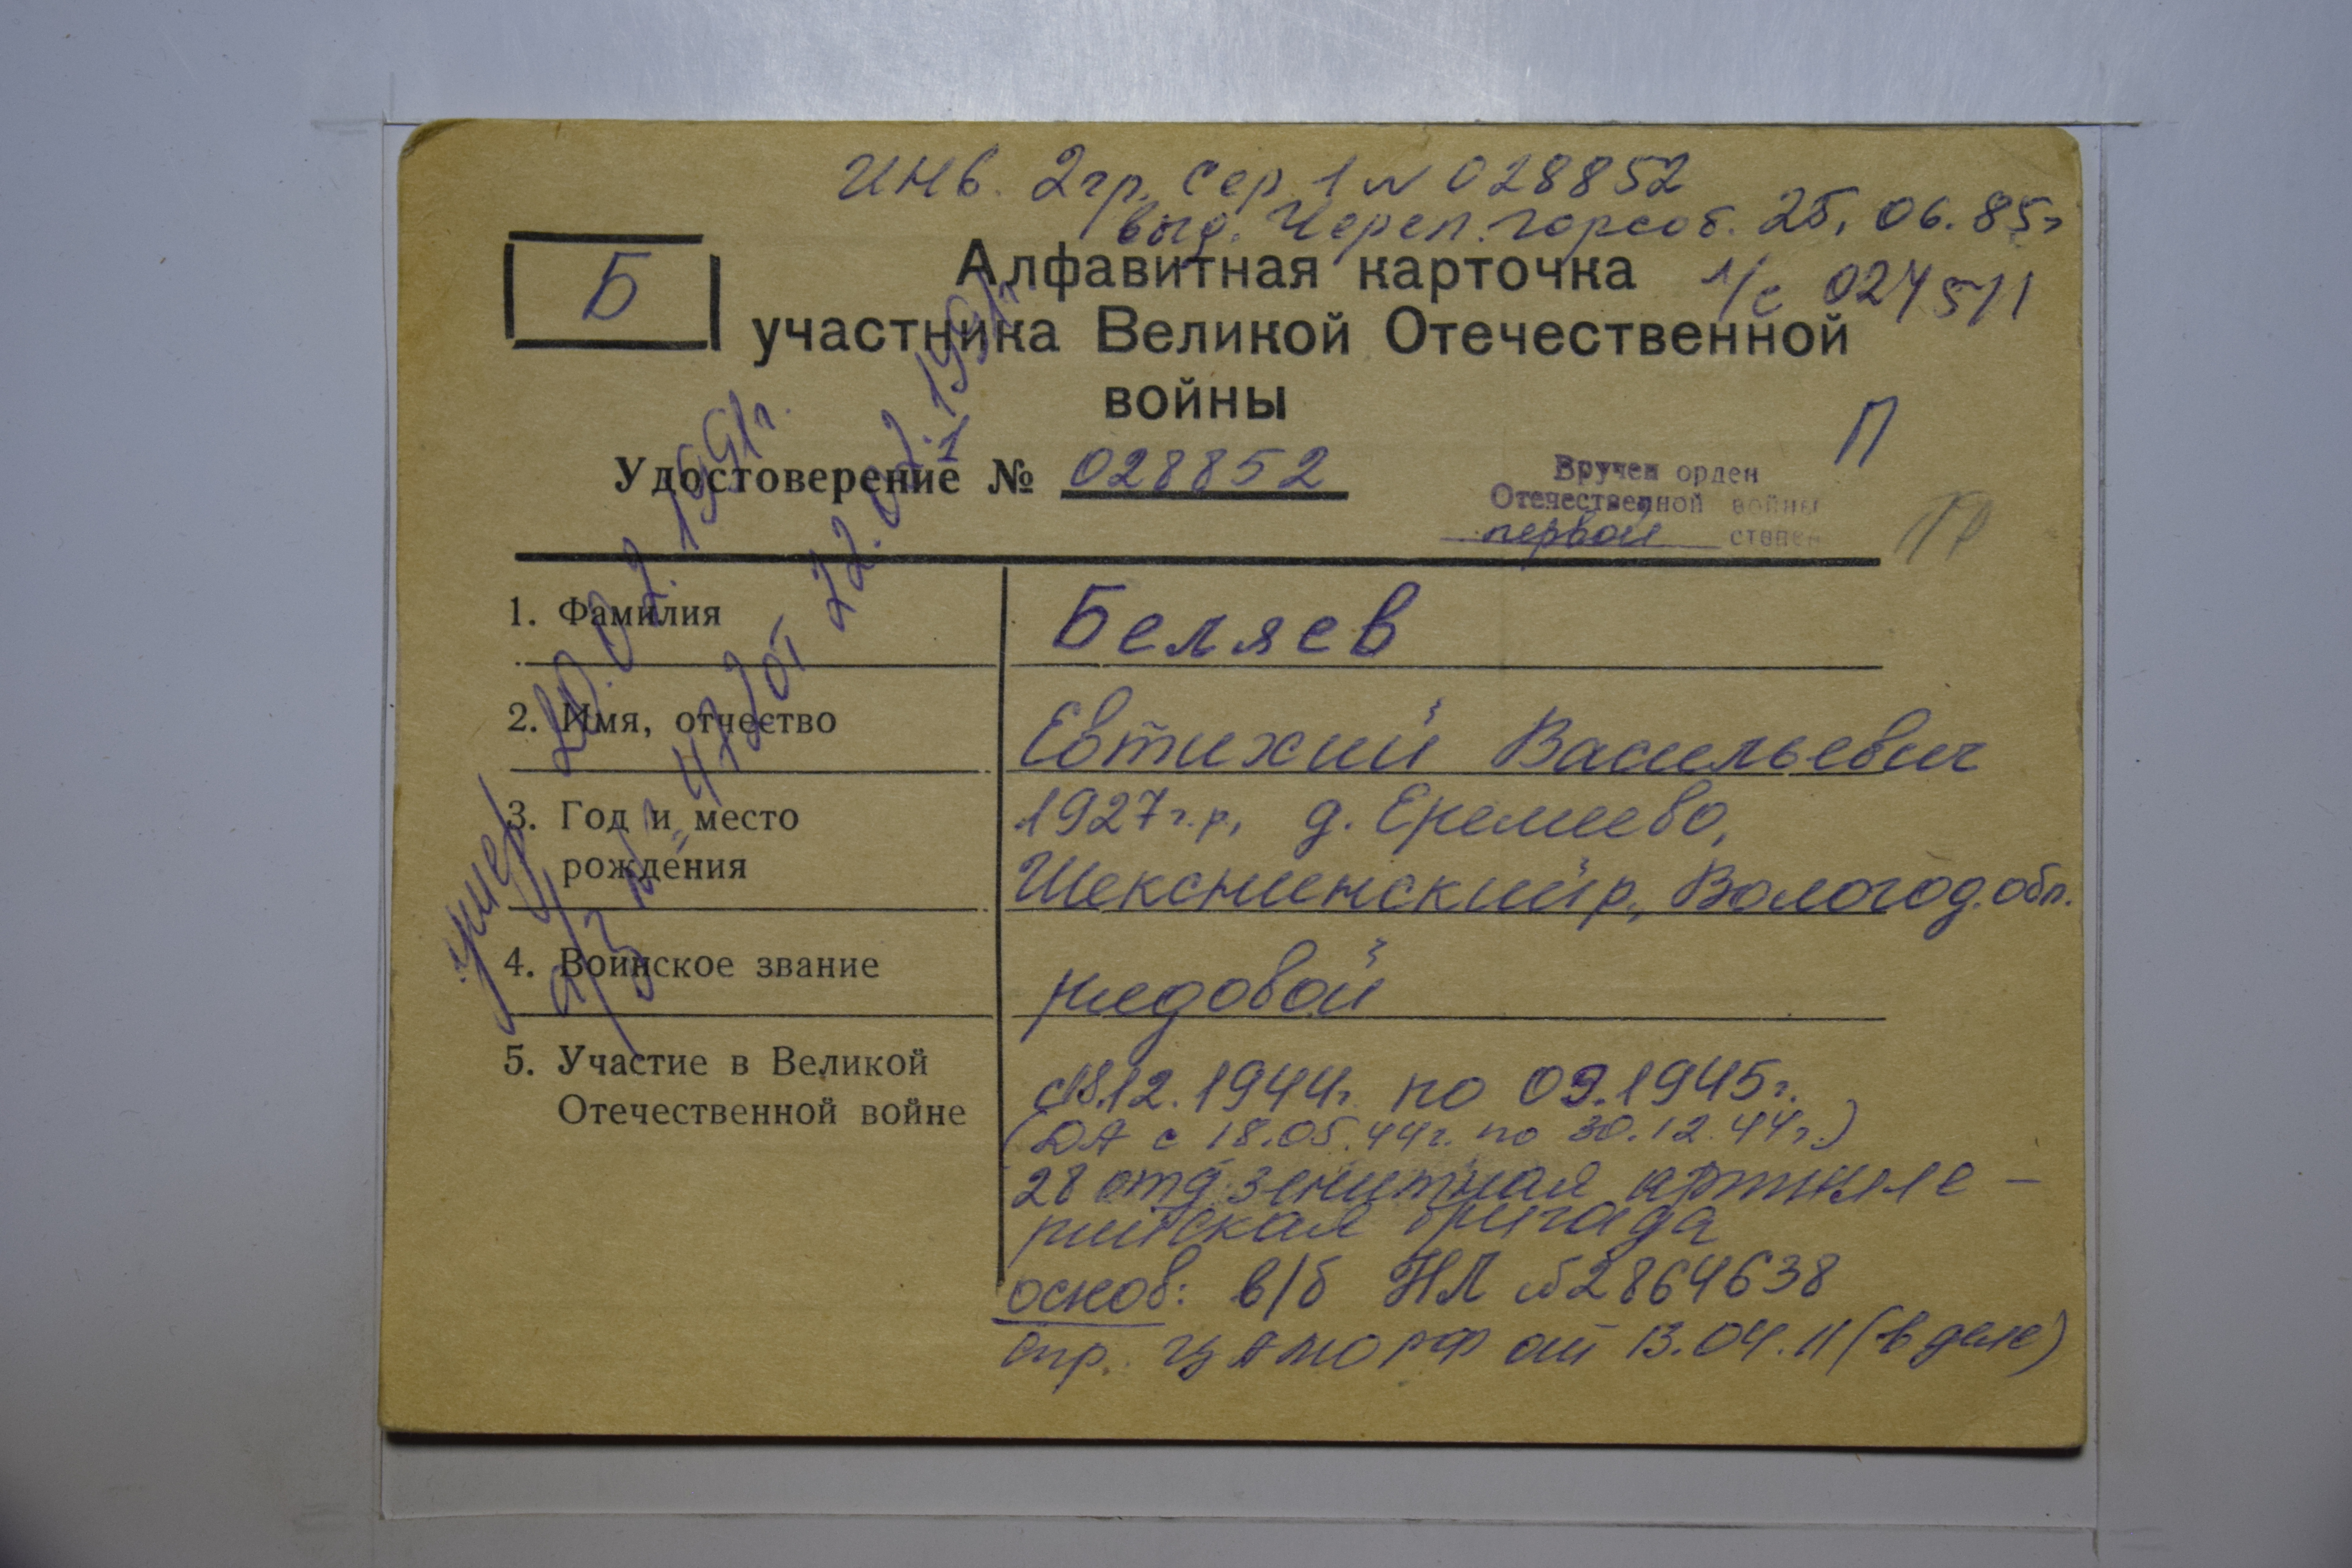 инв. 2 гр. сер. 1 № 028852
выд. Череп. горсоб. 25.06.85г
Б
Алфавитная карточка
1/с 024511
участника Великой Отечественной
войны
П
Удостоверение № 028852
Вручен орден
Отечественной войны
первой степен
умер 20.02.1991г.
472 от 22.02.1991г.
1. Фамилия Беляев
2. Имя, отчество Евтихий Васильевич
3. Год и место 1927 г.р., д. Еремеево,
рождения Шекснинский р, Вологод. обл.
4. Воинское звание рядовой
5. Участие в Великой
Отечественной войне
с 18.12.1944г. по 09.1945г.
(ДА с 18.05.44г. по 30.12.44г.)
28 отд. зенитная артилле-
рийская бригада
основ: в/б НЛ №2864638
спр. ЦАМО РФ от 13.04.11 (в деле)